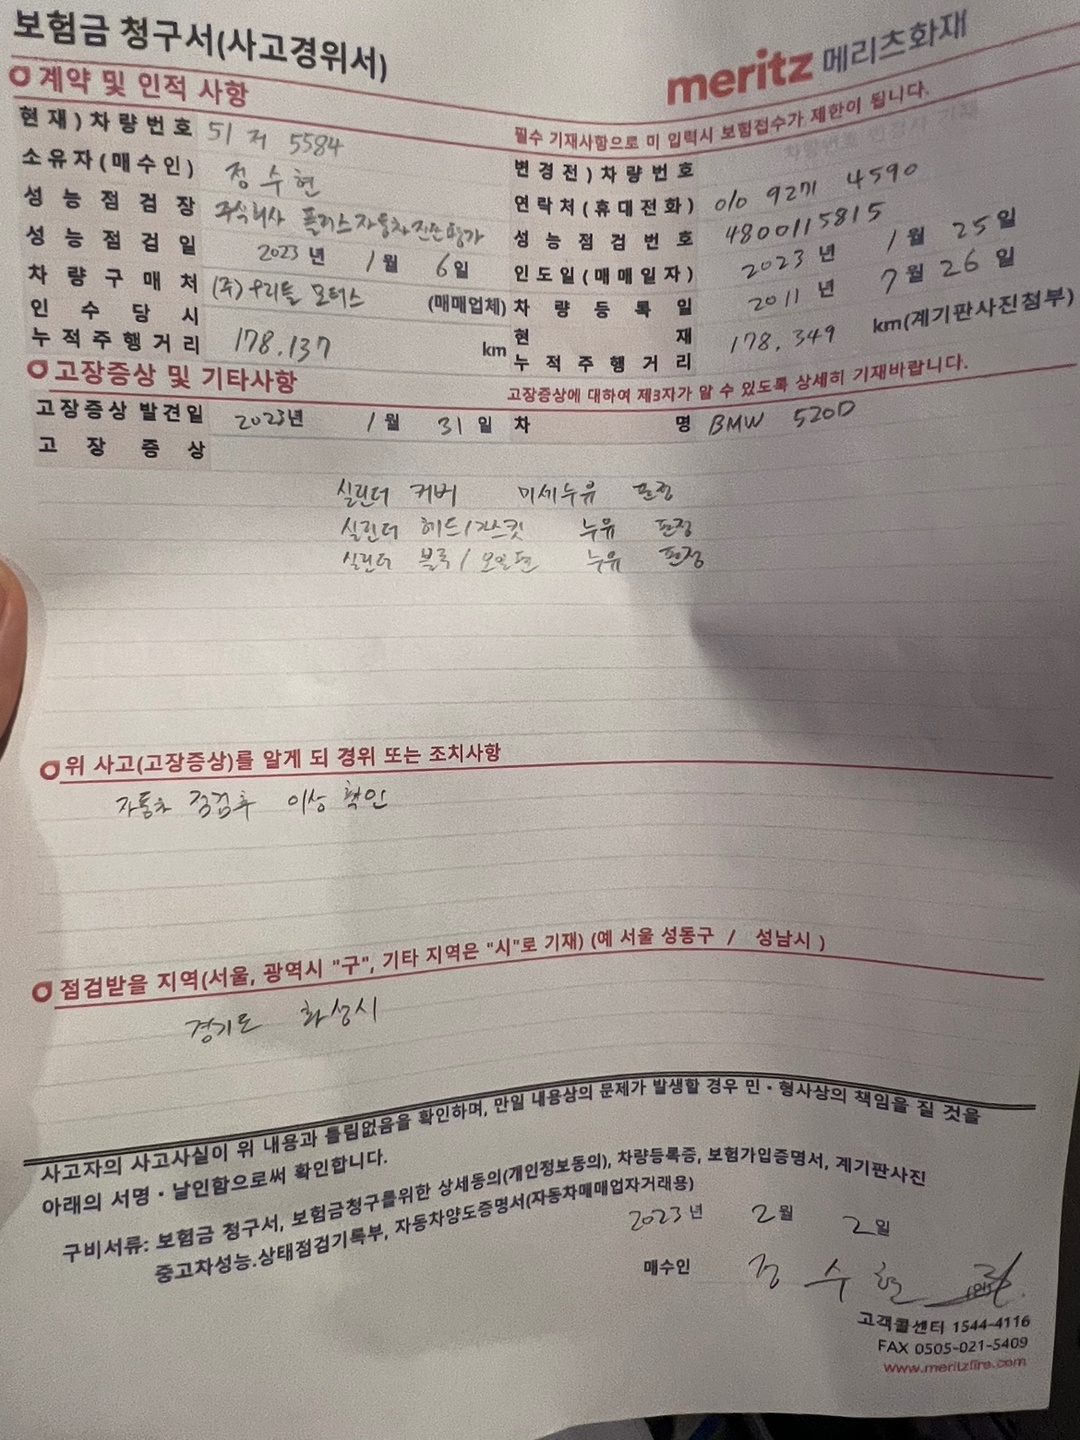 보험금 청구서(사고경위서)
meritz 메리츠화재
계약 및 인적 사항
필수 기재사항으로 미 입력시 보험접수가 제한이 됩니다.
현재) 차량번호 51 저 5584
변경전) 차량번호
소유자(매수인) 정수현
연락처(휴대전화) 010 9271 4590
성능점검장 주식회사 플러스자동차진단평가
성능점검번호 4800115815
성능점검일 2023년 1월 6일
인도일(매매일자) 2023년 1월 25일
차량구매처 (주)우리들 모터스 (매매업체)
차량등록일 2011년 7월 26일
인수당시 누적주행거리 178.137 km
현재 누적주행거리 178,349 km(계기판사진첨부)
고장증상 및 기타사항
고장증상에 대하여 제3자가 알 수 있도록 상세히 기재바랍니다.
고장증상 발견일 2023년 1월 31일
차명 BMW 520D
고장증상
실린더 커버 미세누유 판정
실린더 헤드/가스킷 누유 판정
실린더 블록/오일팬 누유 판정
위 사고(고장증상)를 알게 되 경위 또는 조치사항
자동차 점검후 이상 확인
점검받을 지역(서울, 광역시 "구", 기타 지역은 "시"로 기재) (예 서울 성동구 / 성남시 )
경기도 화성시
사고자의 사고사실이 위 내용과 틀림없음을 확인하며, 만일 내용상의 문제가 발생할 경우 민·형사상의 책임을 질 것을
아래의 서명·날인함으로써 확인합니다.
구비서류: 보험금 청구서, 보험금청구를위한 상세동의(개인정보동의), 차량등록증, 보험가입증명서, 계기판사진
중고차성능.상태점검기록부, 자동차양도증명서(자동차매매업자거래용)
2023년 2월 2일
매수인 정수현 (인)
고객콜센터 1544-4116
FAX 0505-021-5409
www.meritzfire.com